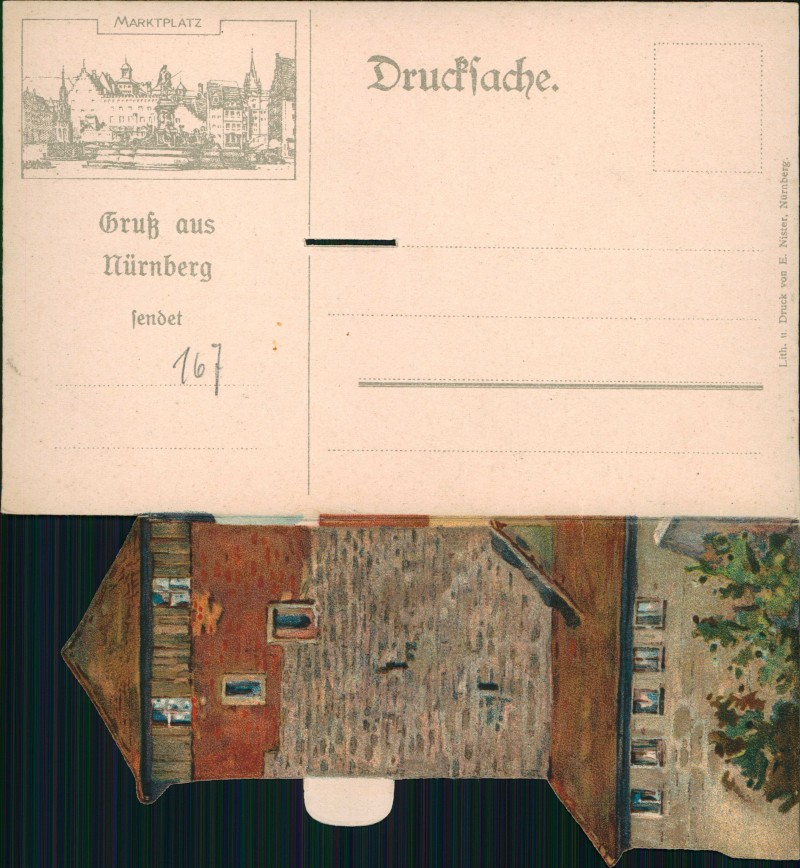 MARKTPLATZ
Drucksache.
Gruß aus
Nürnberg
sendet
167
Lith. u. Druck von E. Nister, Nürnberg.